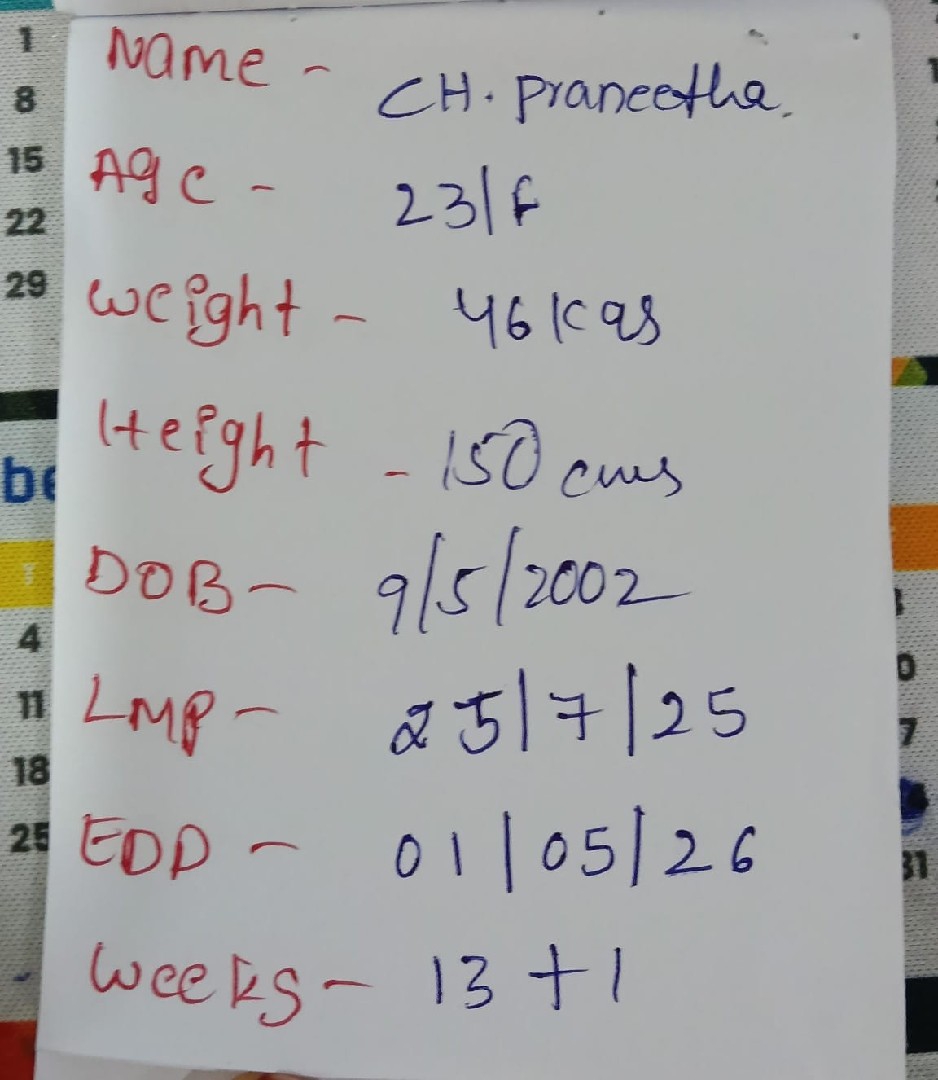 1
8
15
22
29
be
4
11
18
25
Name - CH. Praneetha.
Age - 23/F
Weight - 46 Kgs
Height - 150 cms
DOB - 9/5/2002
LMP - 25/7/25
EDD - 01/05/26
Weeks - 13+1
7
31